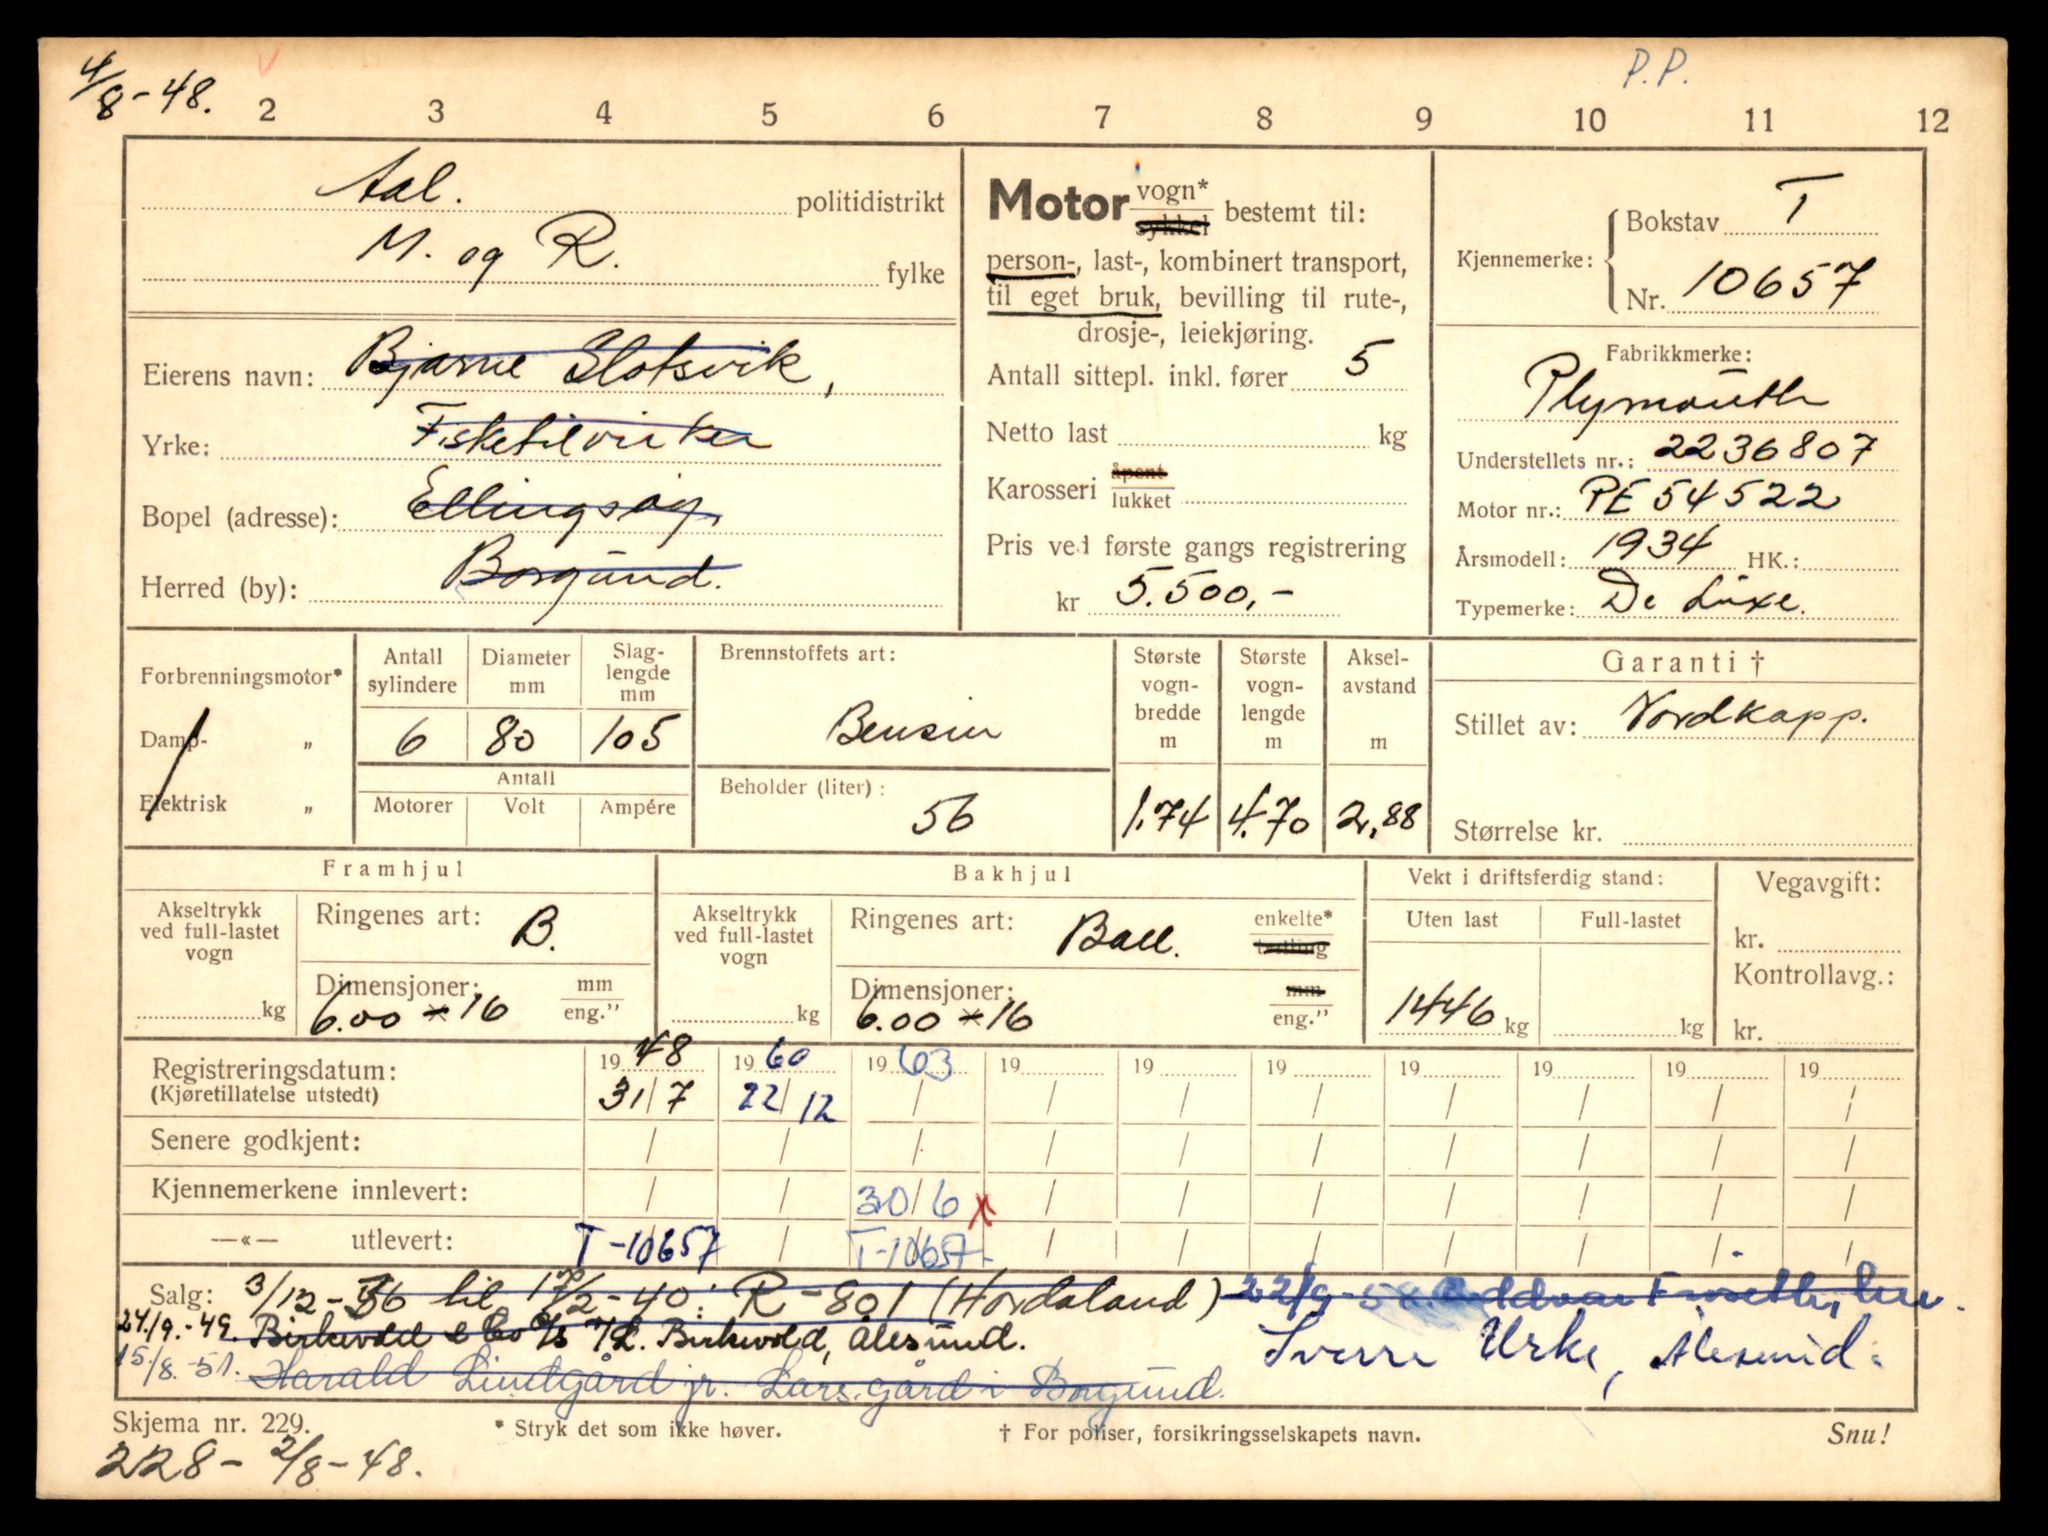 4/8-48.
P.P.
2 3 4 5 6 7 8 9 10 11 12
Aal. politidistrikt
M. og R. fylke
Eierens navn: Bjarne Slotsvik,
Yrke: Fisketilvirker
Bopel (adresse): Ellingsøy,
Herred (by): Borgund.
Motor vogn* sykkel bestemt til:
person-, last-, kombinert transport,
til eget bruk, bevilling til rute-,
drosje-, leiekjøring.
Antall sittepl. inkl. fører 5
Netto last kg
Karosseri åpent lukket
Pris ved første gangs registrering
kr 5.500,-
Kjennemerke: Bokstav T
Nr. 10657
Fabrikkmerke:
Plymouth
Understellets nr.: 2236807
Motor nr.: PE 54522
Årsmodell: 1934 HK.:
Typemerke: De Luxe.
Forbrenningsmotor*
Damp- „
Elektrisk „
Antall sylindere
6
Diameter mm
80
Slag-
lengde
mm
105
Antall
Motorer Volt Ampére
Brennstoffets art:
Bensin
Beholder (liter):
56
Største
vogn-
bredde
m
1.74
Største
vogn-
lengde
m
4.70
Aksel-
avstand
m
2,88
Garanti †
Stillet av: Nordkapp.
Størrelse kr.
Framhjul
Akseltrykk
ved full-lastet
vogn
kg
Ringenes art: B.
Dimensjoner: mm
6.00 * 16 eng."
Bakhjul
Akseltrykk
ved full-lastet
vogn
kg
Ringenes art: Ball. enkelte*
tvilling
Dimensjoner: mm
6.00 * 16 eng."
Vekt i driftsferdig stand:
Uten last Full-lastet
1446 kg kg
Vegavgift:
kr.
Kontrollavg.:
kr.
Registreringsdatum: 1948 1960 1963 19 19 19 19 19 19 19
(Kjøretillatelse utstedt) 31/7 22/12 / / / / / / / /
Senere godkjent: / / / / / / / / / /
Kjennemerkene innlevert: / / 30/6 x / / / / / / /
—«— utlevert: T-10657 / T-10657- / / / / / / /
Salg: 3/12-36 til 17/2-40: R-801 (Hordaland) 22/9-58. Oddvar Frisetth, her.
24./9.-49. Birkevold & Co A/S v/L. Birkevold, Ålesund.
Sverre Urke, Ålesund.
15./8.-51. Harald Lindgård jr. Larsgård i Borgund.
Skjema nr. 229. * Stryk det som ikke høver. † For poliser, forsikringsselskapets navn. Snu!
228- 2/8-48.